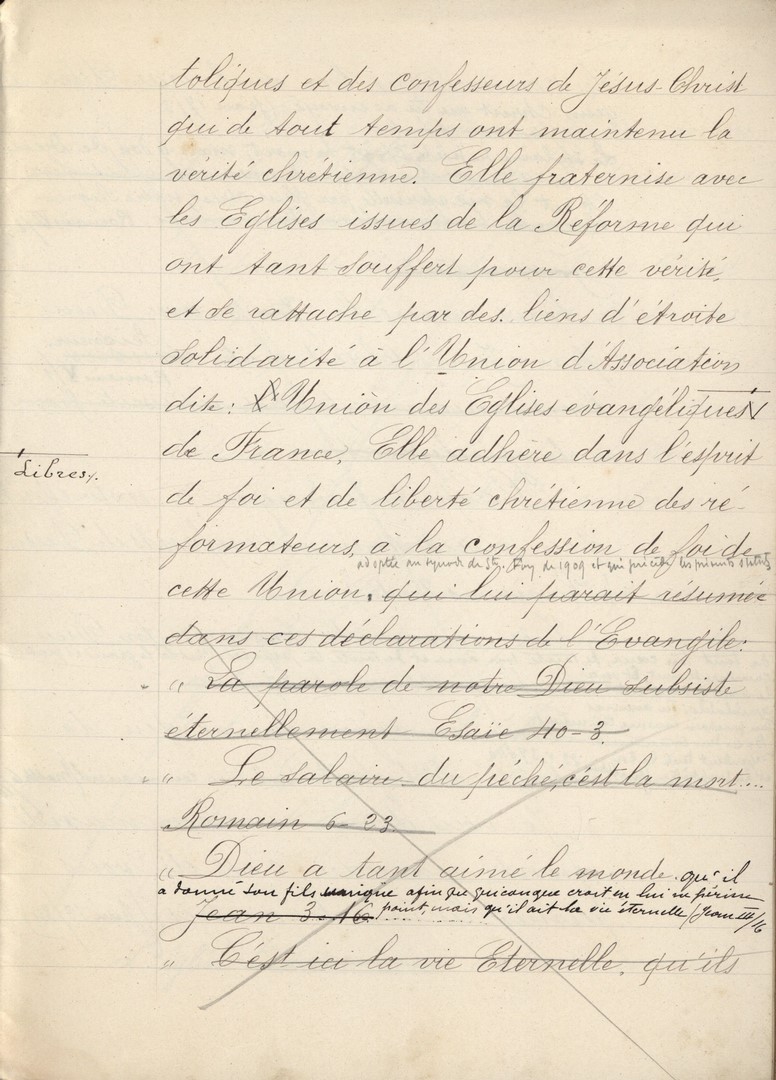 toliques et des confesseurs de Jésus-Christ
qui de tout temps ont maintenu la
vérité chrétienne. Elle fraternise avec
les Eglises issues de la Réforme qui
ont tant souffert pour cette vérité,
et se rattache par des liens d'étroite
solidarité à l'Union d'Association
dite: Union des Eglises évangéliques
Libres
de France. Elle adhère dans l'esprit
de foi et de liberté chrétienne des ré-
formateurs, à la confession de foi de
adoptée au synode de Ste. Foy de 1909 et qui précède les présents statuts
cette Union. qui lui parait résumée
dans ces déclarations de l'Evangile:
" La parole de notre Dieu subsiste
éternellement Esaïe 40-3.
" Le salaire du péché, c'est la mort...
Romain 6-23.
" Dieu a tant aimé le monde. qu'il
a donné son fils unique afin que quiconque croit en lui ne périsse
Jean 3.16. point, mais qu'il ait la vie éternelle / Jean III/16
" C'est ici la vie Eternelle, qu'ils